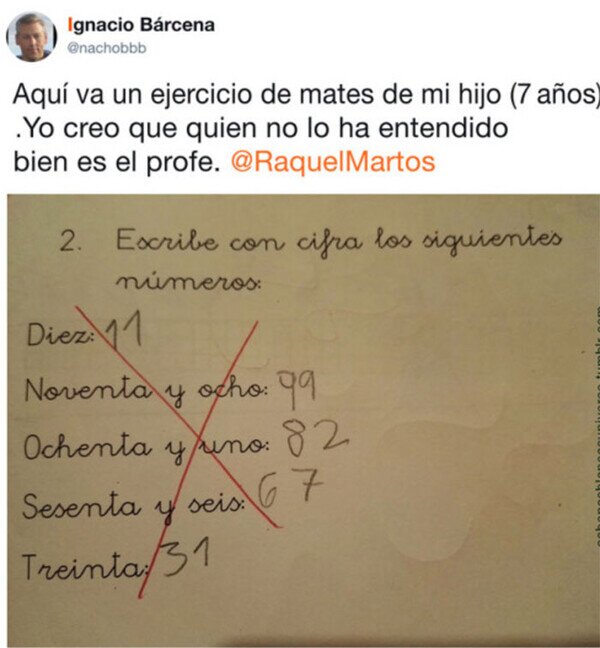 Ignacio Bárcena
@nachobbb
Aquí va un ejercicio de mates de mi hijo (7 años)
.Yo creo que quien no lo ha entendido
bien es el profe. @RaquelMartos
2. Escribe con cifra los siguientes
números:
Diez: 11
Noventa y ocho: 99
Ochenta y uno: 82
Sesenta y seis: 67
Treinta: 31